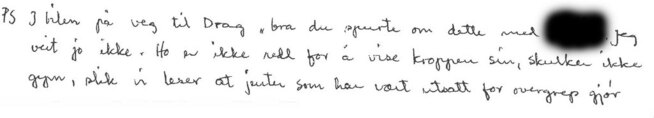 PS I bilen på veg til Drag „bra du spurte om dette med Jeg
veit jo ikke. Ho er ikke redd for å vise kroppen sin, skulker ikke
gym, slik vi leser at jenter som har vært utsatt for overgrep gjør